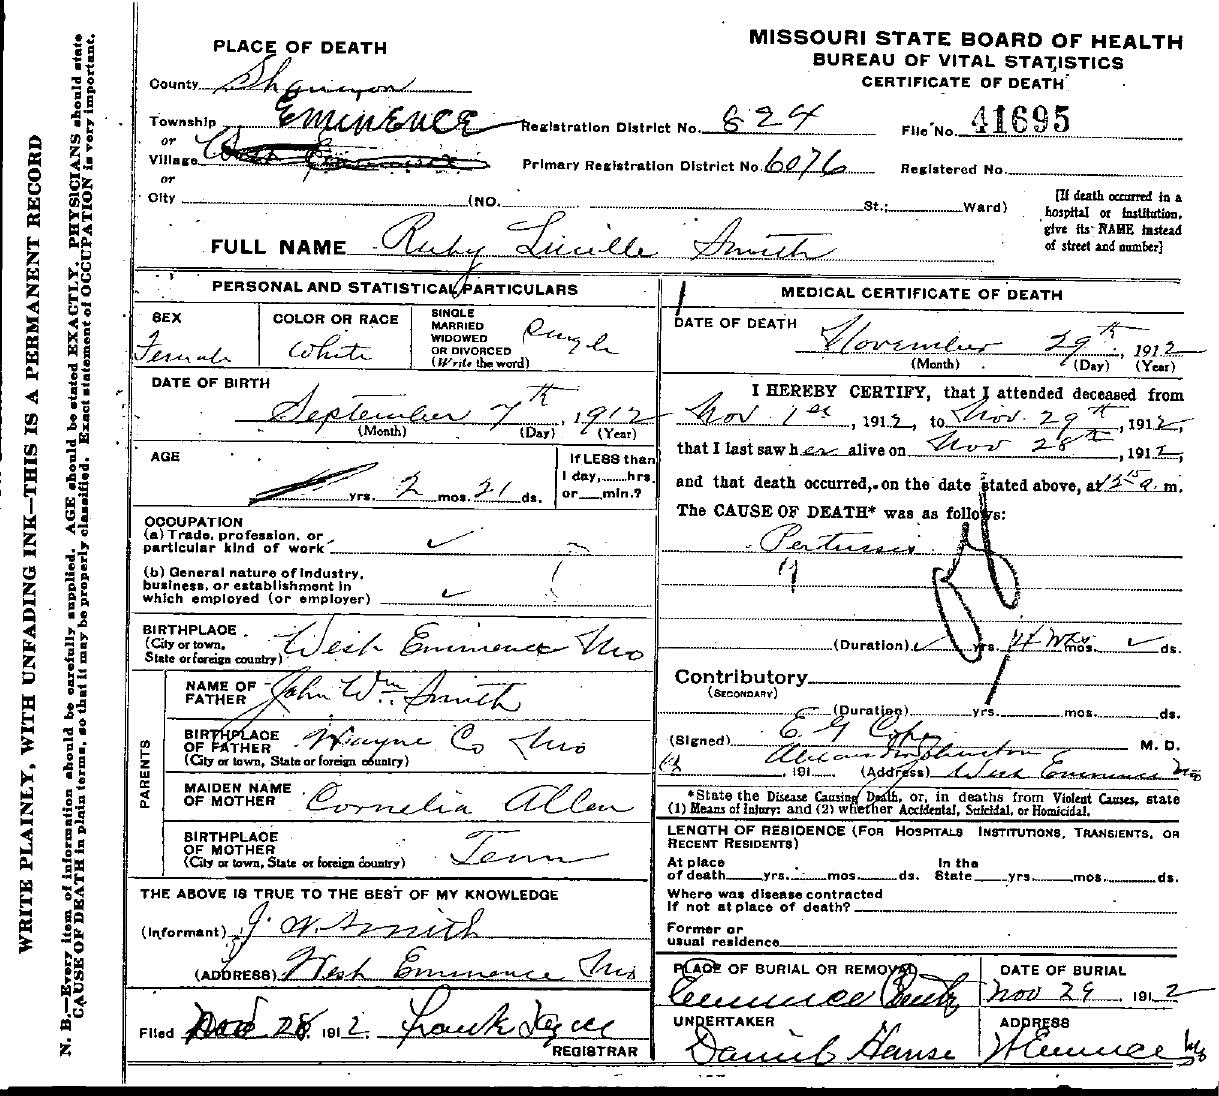 WRITE PLAINLY, WITH UNFADING INK—THIS IS A PERMANENT RECORD
N. B.—Every item of information should be carefully supplied. AGE should be stated EXACTLY. PHYSICIANS should state
CAUSE OF DEATH in plain terms, so that it may be properly classified. Exact statement of OCCUPATION is very important.
MISSOURI STATE BOARD OF HEALTH
BUREAU OF VITAL STATISTICS
CERTIFICATE OF DEATH
PLACE OF DEATH
County Shannon
Township Eminence Registration District No. 824 File No. 41695
or
Village Primary Registration District No. 6076 Registered No.
or
City (NO. St.; Ward)
[If death occurred in a
hospital or institution,
give its NAME instead
of street and number]
FULL NAME Ruby Lucille Smith
PERSONAL AND STATISTICAL PARTICULARS
SEX
Female
COLOR OR RACE
White
SINGLE
MARRIED
WIDOWED
OR DIVORCED
(Write the word)
Single
DATE OF BIRTH
September 7th, 1912
(Month) (Day) (Year)
AGE
yrs. 2 mos. 21 ds.
If LESS than
1 day, hrs.
or min.?
OCCUPATION
(a) Trade, profession, or
particular kind of work
(b) General nature of industry,
business, or establishment in
which employed (or employer)
BIRTHPLACE
(City or town,
State or foreign country)
West Eminence Mo
PARENTS
NAME OF
FATHER
John Wm. Smith
BIRTHPLACE
OF FATHER
(City or town, State or foreign country)
Wayne Co Mo
MAIDEN NAME
OF MOTHER
Cornelia Allen
BIRTHPLACE
OF MOTHER
(City or town, State or foreign country)
Tenn
THE ABOVE IS TRUE TO THE BEST OF MY KNOWLEDGE
(Informant) J. W. Smith
(ADDRESS) West Eminence Mo
Filed 28 1912 Frank
REGISTRAR
MEDICAL CERTIFICATE OF DEATH
DATE OF DEATH
November 29th, 1912
(Month) (Day) (Year)
I HEREBY CERTIFY, that I attended deceased from
Nov 1st, 1912, to Nov. 29th, 1912,
that I last saw her alive on Nov 28th, 1912,
and that death occurred, on the date stated above, at 12 15 a. m.
The CAUSE OF DEATH* was as follows:
Pertussis
(Duration) yrs. 4 Wks mos. ds.
Contributory
(SECONDARY)
(Duration) yrs. mos. ds.
(Signed) E G M. D.
, 191 (Address) West Eminence Mo
*State the Disease Causing Death, or, in deaths from Violent Causes, state
(1) Means of Injury; and (2) whether Accidental, Suicidal, or Homicidal.
LENGTH OF RESIDENCE (FOR HOSPITALS INSTITUTIONS, TRANSIENTS, OR
RECENT RESIDENTS)
At place
of death yrs. mos. ds.
In the
State yrs. mos. ds.
Where was disease contracted
If not at place of death?
Former or
usual residence
PLACE OF BURIAL OR REMOVAL
Eminence
DATE OF BURIAL
Nov 29 1912
UNDERTAKER
Daniel
ADDRESS
W Eminence Mo